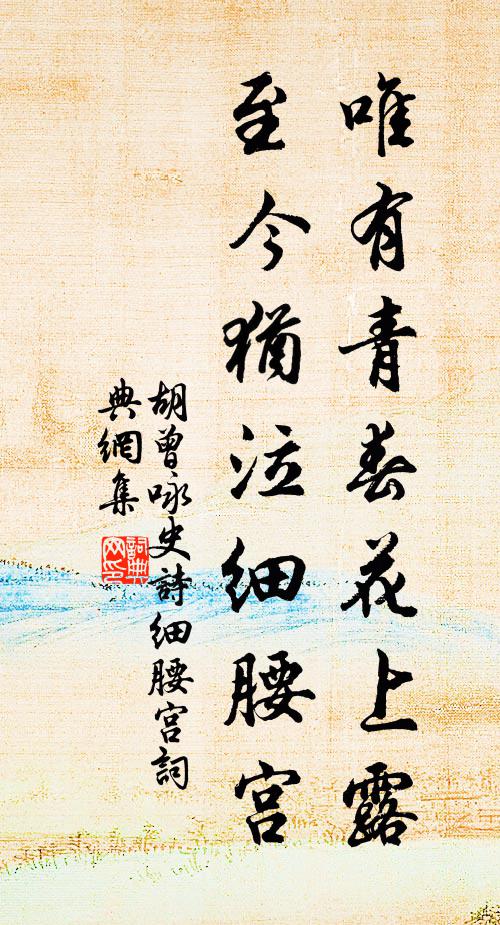 唯有青春花上露
至今猶泣細腰宮
胡曾咏史詩細腰宮詞
典網集
詞典
网印